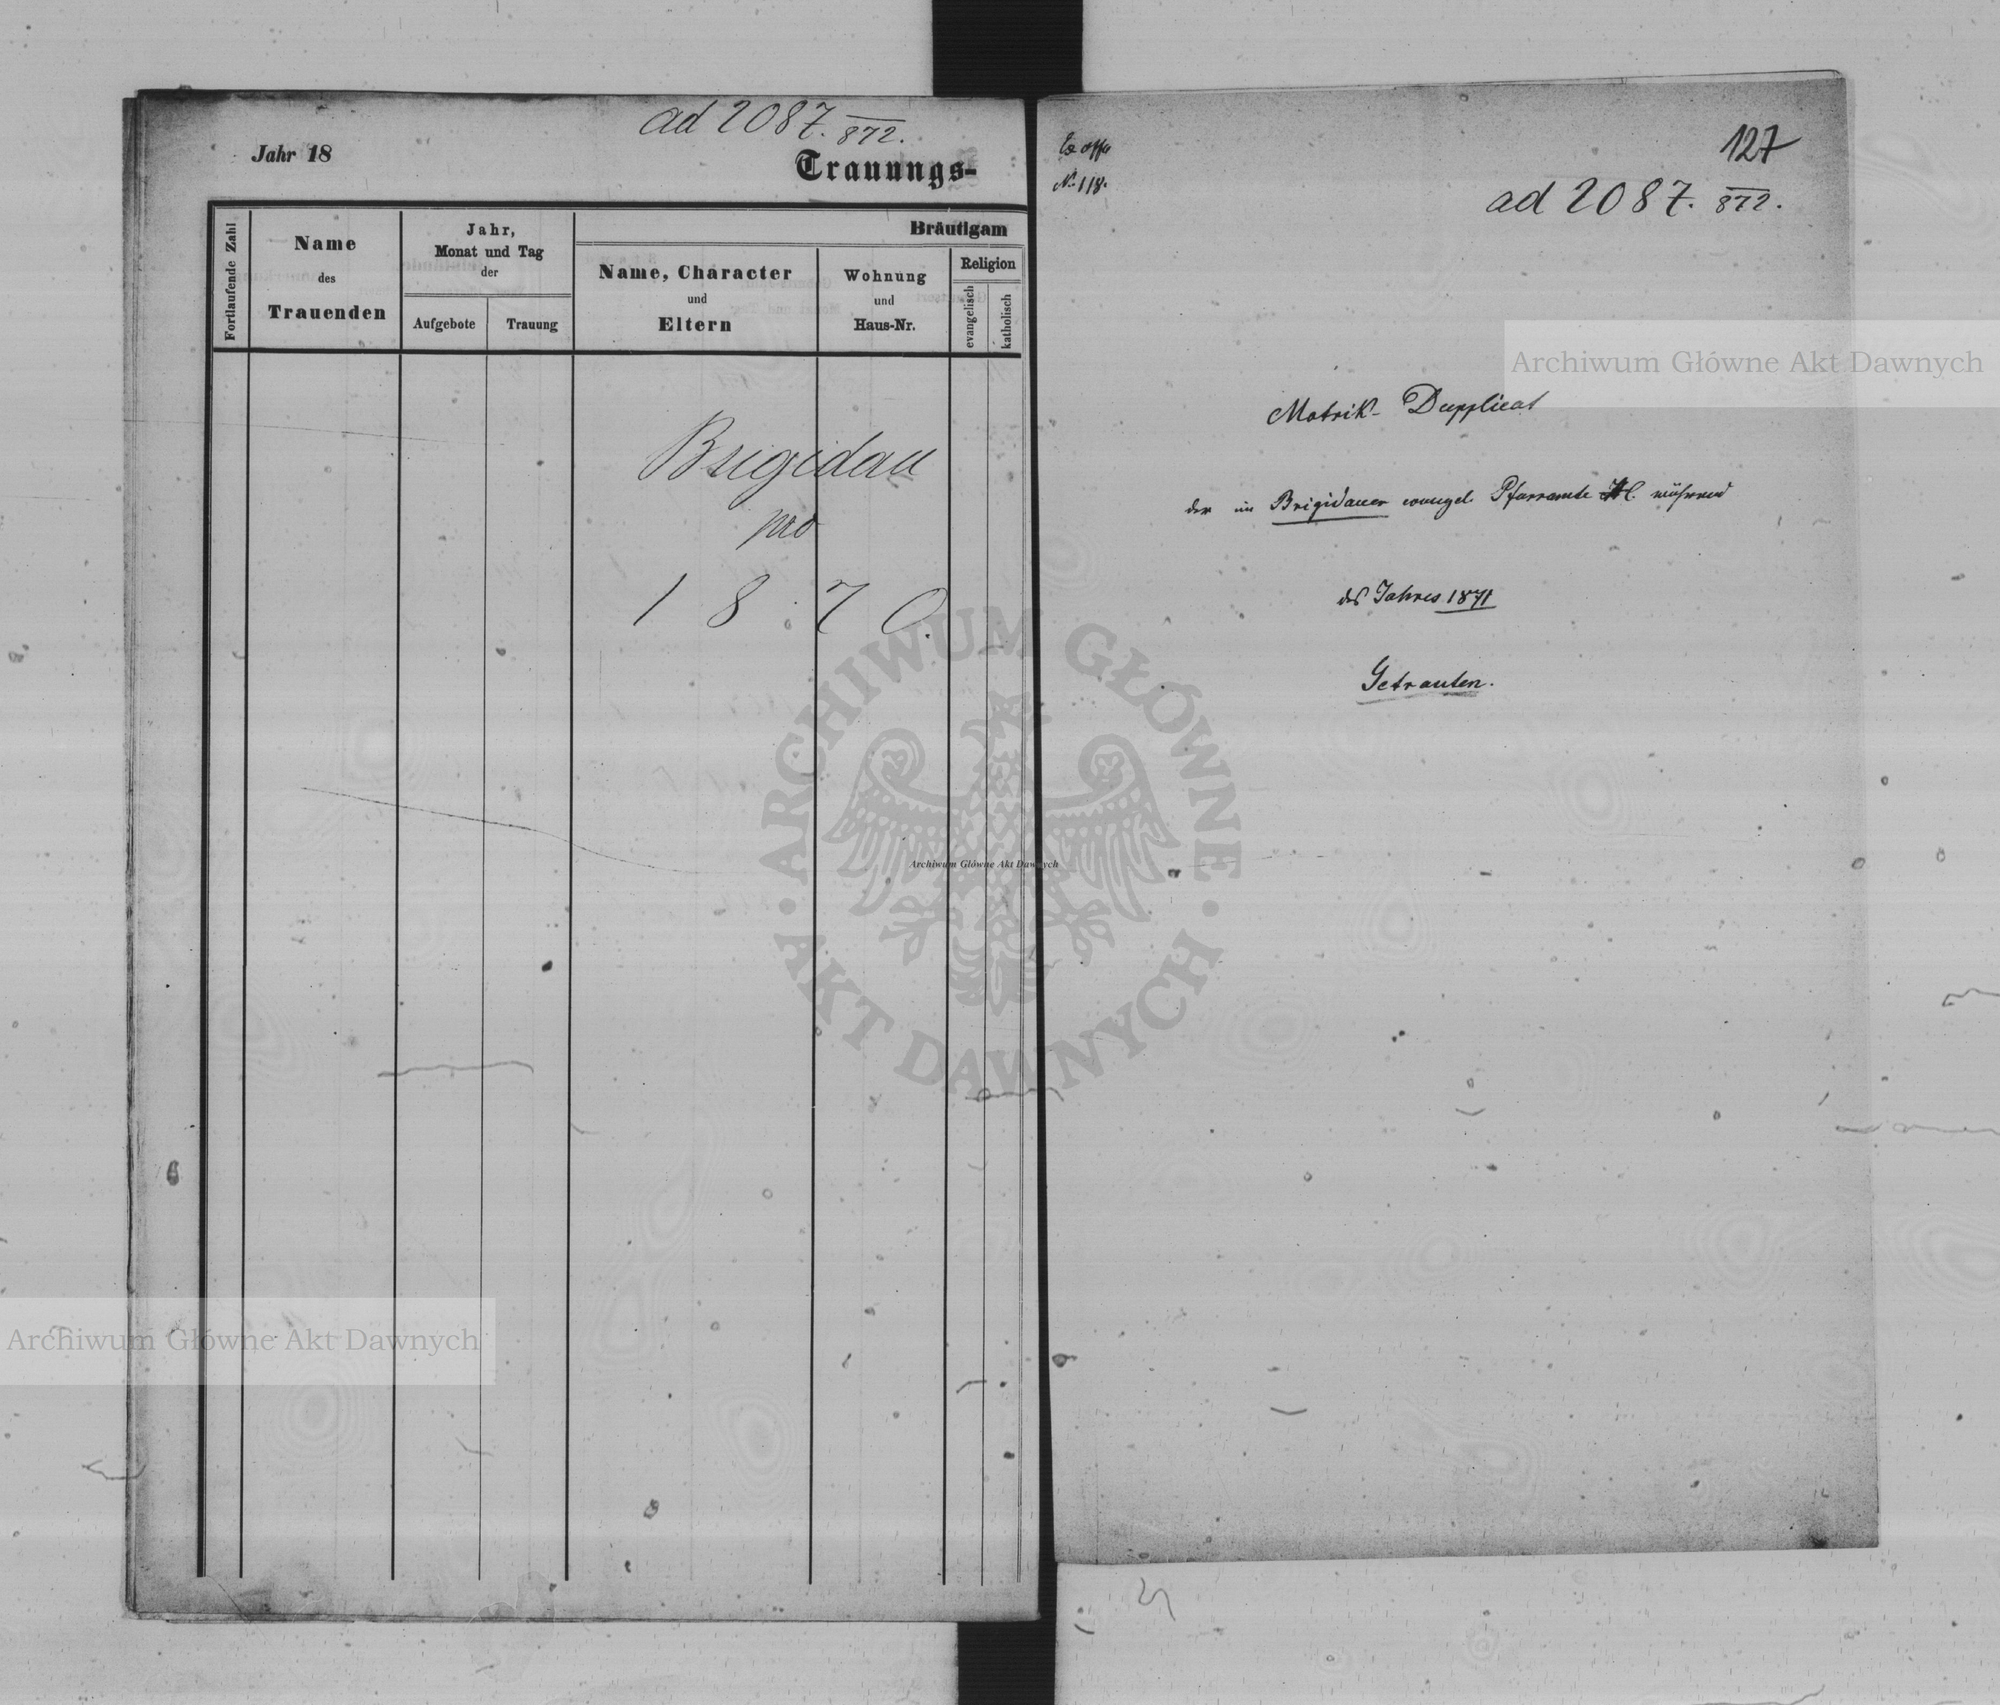 ad 2087. 872.
Jahr 18
Trauungs-
Fortlaufende Zahl
Name
des
Trauenden
Jahr,
Monat und Tag
der
Aufgebote
Trauung
Bräutigam
Name, Character
und
Eltern
Wohnung
und
Haus-Nr.
Religion
evangelisch
katholisch
Brigidau
pro
1870.
Ex offo
No. 118.
127
ad 2087. 872.
Matrik-Dupplicat
der im Brigidauer evangel. Pfarramte während
des Jahres 1871
Getrauten.
Archiwum Główne Akt Dawnych
ARCHIWUM GŁÓWNE
AKT DAWNYCH
Archiwum Główne Akt Dawnych
Archiwum Główne Akt Dawnych